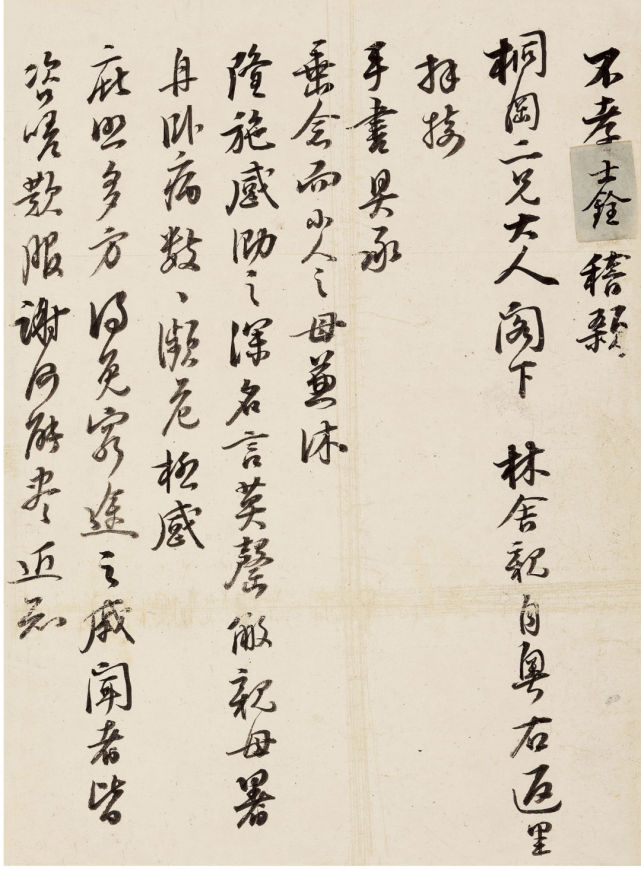 不孝士銓稽顙
桐岡二兄大人閣下 林舍親自粵右返里
拜接
手書具承
垂念而小人之母兼沐
隆施感泐之深名言莫罄敝親母署
舟臥病數々瀕危極感
庇照多方得免窮途之戚聞者皆
咨嗟歎服謝何能盡近知